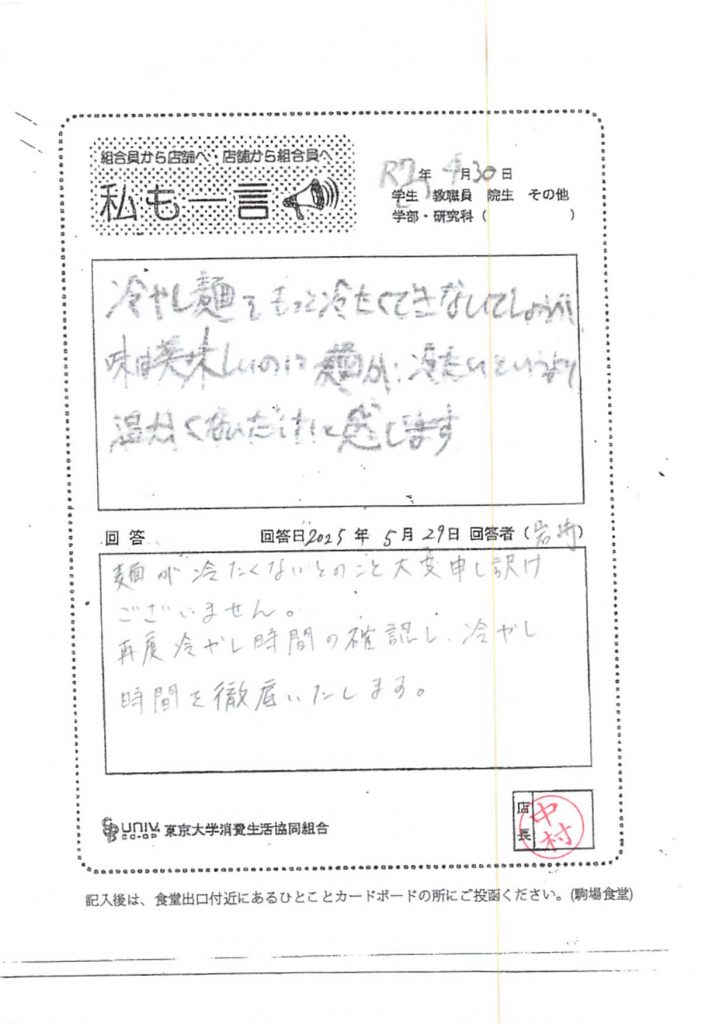 組合員から店舗へ・店舗から組合員へ
私も一言
R7年 4月30日
学生 教職員 院生 その他
学部・研究科（　　　）
冷やし麺をもっと冷たくできないでしょうか
味は美味しいのに麺が冷たいというより
温かくないだけに感じます
回答 回答日2025年5月29日 回答者（岩崎）
麺が冷たくないとのこと大変申し訳け
ございません。
再度冷やし時間の確認し、冷やし
時間を徹底いたします。
UNIV. CO-OP 東京大学消費生活協同組合
店長 中村
記入後は、食堂出口付近にあるひとことカードボードの所にご投函ください。(駒場食堂)